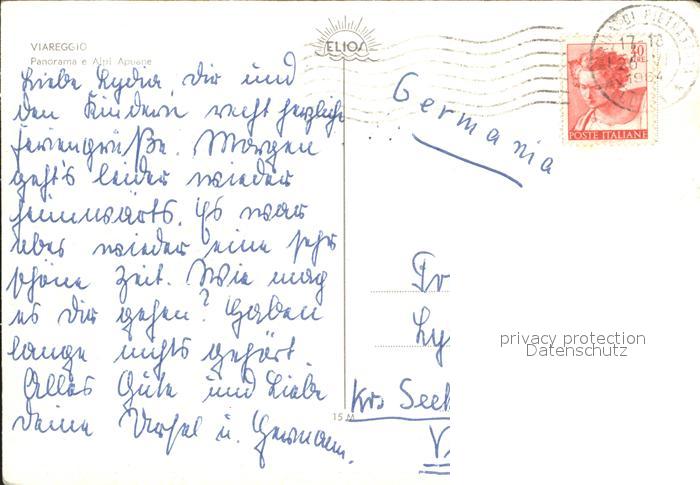 VIAREGGIO
Panorama e Alpi Apuane
ELIOS
Liebe Lydia, dir und
den Kindern recht herzliche
Feriengrüße. Morgen
geht's leider wieder
heimwärts. Es war
aber wieder eine sehr
schöne Zeit. Wie mag
es dir gehen? Haben
lange nichts gehört.
Alles Gute und Liebe
deine Ursel u. Germann.
15 M
17-18
1964
POSTE ITALIANE
Germania
Fr
Ly
Krs. Seck
privacy protection
Datenschutz